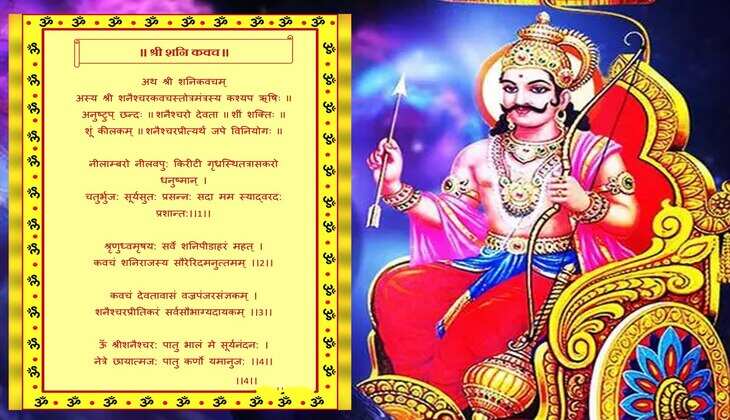 ॥ श्री शनि कवच॥
अथ श्री शनिकवचम्
अस्य श्री शनैश्चरकवचस्तोत्रमंत्रस्य कश्यप ऋषिः ॥
अनुष्टुप् छन्दः ॥ शनैश्चरो देवता ॥ शीं शक्तिः ॥
शूं कीलकम् ॥ शनैश्चरप्रीत्यर्थं जपे विनियोगः ॥
नीलाम्बरो नीलवपुः किरीटी गृध्रस्थितत्रासकरो
धनुष्मान् ।
चतुर्भुजः सूर्यसुतः प्रसन्नः सदा मम स्याद्वरदः
प्रशान्तः।।1।।
श्रृणुध्वमृषयः सर्वे शनिपीडाहरं महत् ।
कवचं शनिराजस्य सौरेरिदमनुत्तमम् ।।2।।
कवचं देवतावासं वज्रपंजरसंज्ञकम् ।
शनैश्चरप्रीतिकरं सर्वसौभाग्यदायकम् ।।3।।
ऊँ श्रीशनैश्चरः पातु भालं मे सूर्यनंदनः ।
नेत्रे छायात्मजः पातु कर्णो यमानुजः ।।4।।
।।4।।